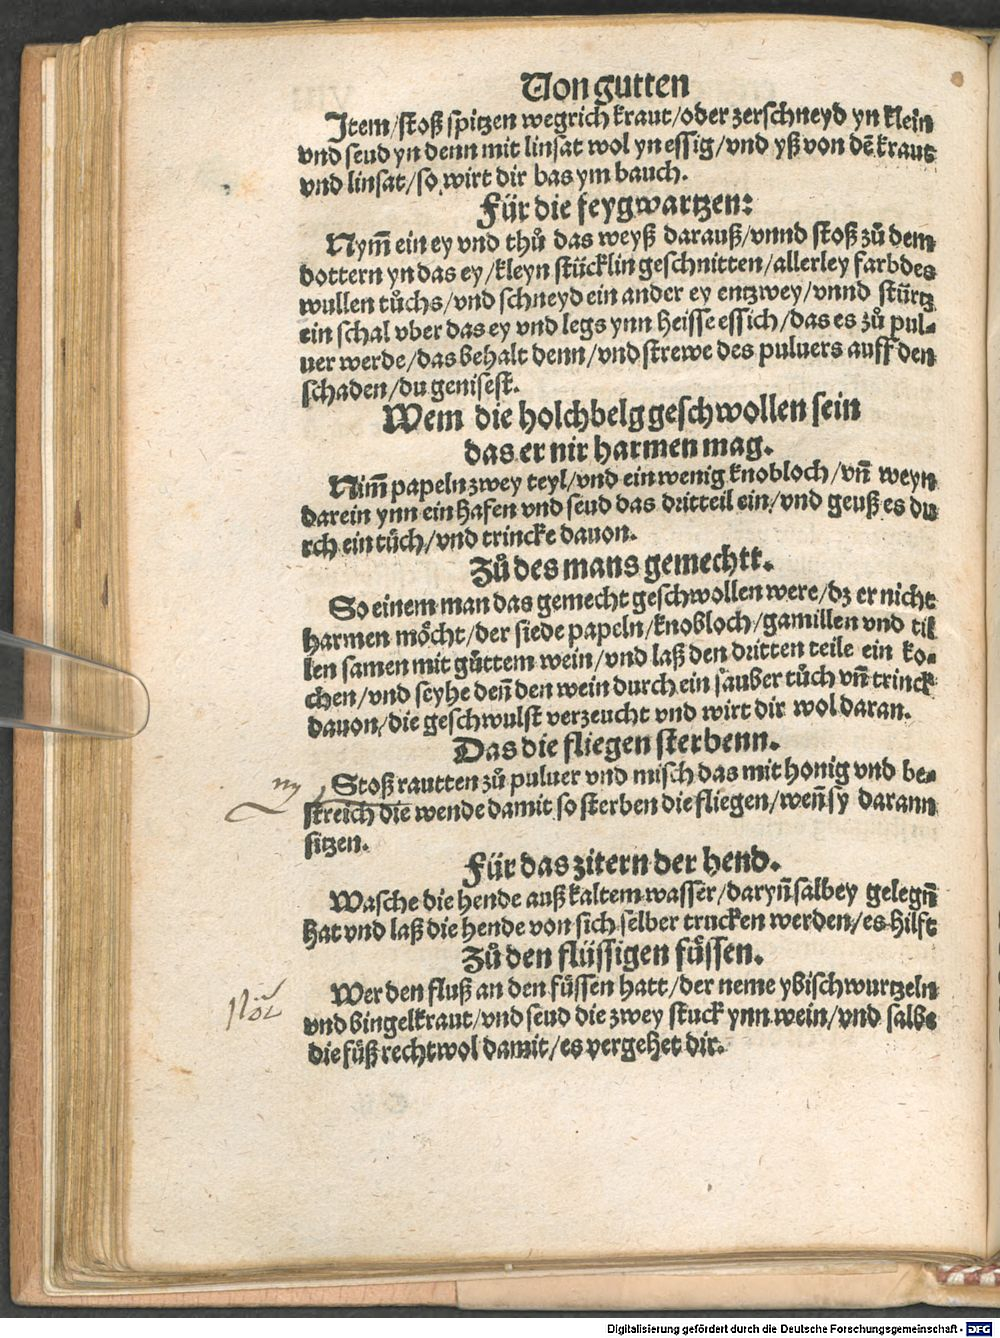 Von gutten
Item/stoß spitzen wegrich kraut/oder zerschneyd yn klein
vnd seud yn denn mit linsat wol yn essig/vnd yß von dẽ kraut
vnd linsat/so wirt dir bas ym bauch.
Für die feygwartzen:
Nym̃ ein ey vnd thů das weyß darauß/vnnd stoß zů dem
dottern yn das ey/kleyn stücklin geschnitten/allerley farb des
wullen tůchs/vnd schneyd ein ander ey entzwey/vnnd stürtz
ein schal vber das ey vnd legs ynn heisse essich/das es zů pul-
uer werde/das behalt denn/vnd strewe des puluers auff den
schaden/du genisest.
Wem die holchbelg geschwollen sein
das er nit harmen mag.
Nim̃ papeln zwey teyl/vnd ein wenig knobloch/vñ weyn
darein ynn ein hafen vnd seud das dritteil ein/vnd geuß es du
rch ein tůch/vnd trincke dauon.
Zů des mans gemechtt.
So einem man das gemecht geschwollen were/dz er nicht
harmen möcht/der siede papeln/knobloch/gamillen vnd til
len samen mit gůttem wein/vnd laß den dritten teile ein ko-
chen/vnd seyhe deñ den wein durch ein sauber tůch vñ trinck
dauon/die geschwulst verzeucht vnd wirt dir wol daran.
Das die fliegen sterbenn.
Stoß rautten zů puluer vnd misch das mit honig vnd be-
streich die wende damit so sterben die fliegen/weñ sy darann
sitzen.
Für das zitern der hend.
Wasche die hende auß kaltem wasser/daryñ salbey gelegñ
hat vnd laß die hende von sich selber trucken werden/es hilft
Zů den flüssigen füssen.
Wer den fluß an den füssen hatt/der neme ybischwurtzeln
vnd bingelkraut/vnd seud die zwey stuck ynn wein/vnd salbe
die füß recht wol damit/es vergehet dir.
Digitalisierung gefördert durch die Deutsche Forschungsgemeinschaft - DFG